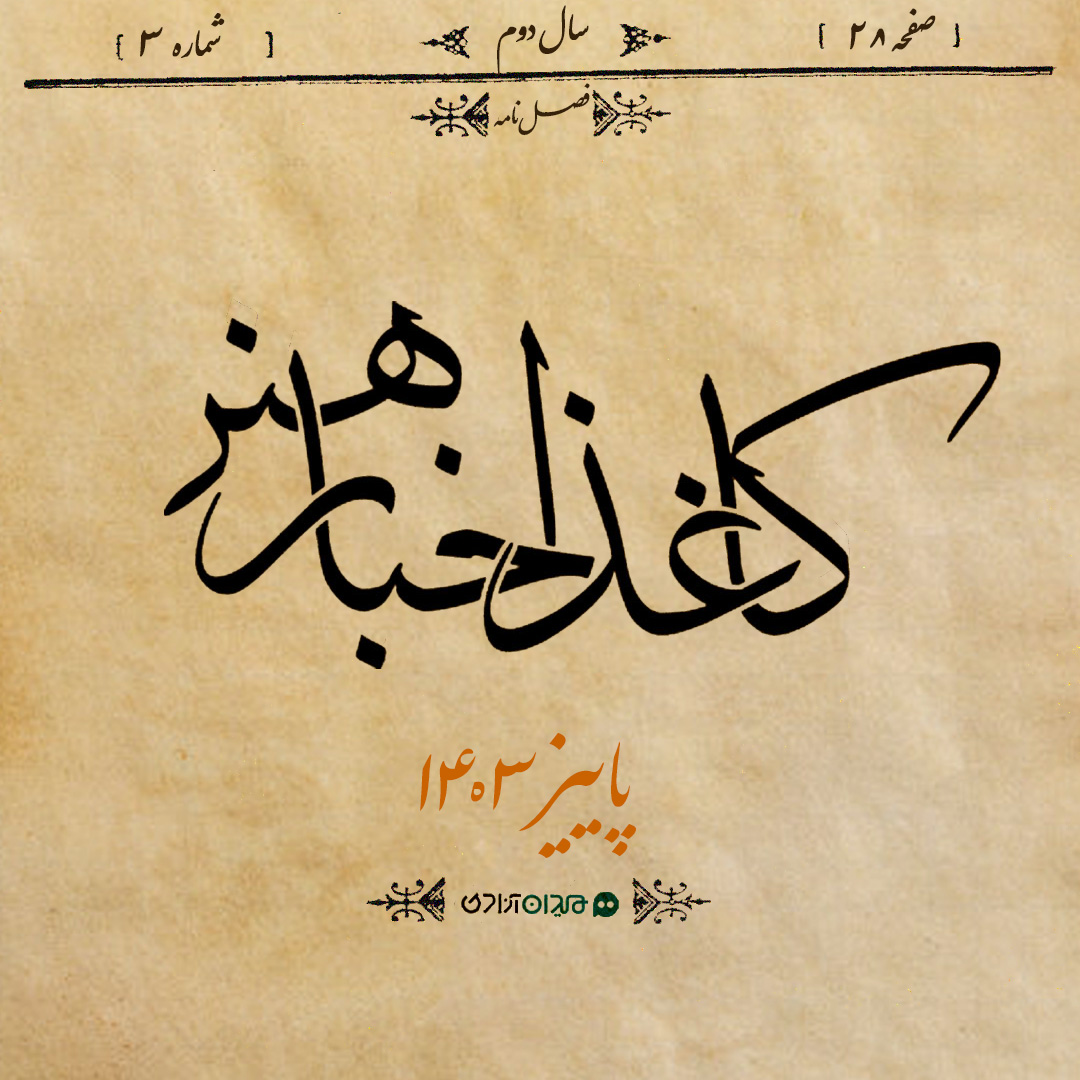 [ صفحه ۲۸ ] سال دوم [ شماره ۳ ]
فصل‌نامه
کاغذ اخبار هنر
پاییز ۱۴۰۳
میدان آزادی